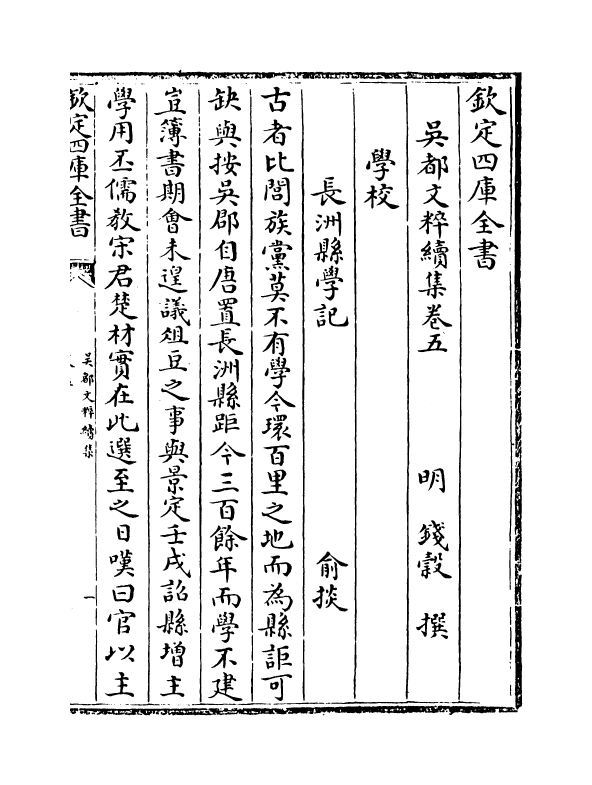 欽定四庫全書
吳都文粹續集卷五　　　明　錢榖　撰
學校
長洲縣學記　　　　　　　俞掞
古者比閭族黨莫不有學今環百里之地而為縣詎可
缺與按吳郡自唐置長洲縣距今三百餘年而學不建
豈簿書期會未遑議俎豆之事與景定壬戌詔縣增主
學用丕儒教宋君楚材實在此選至之日嘆曰官以主
欽定四庫全書
吳都文粹續集
一